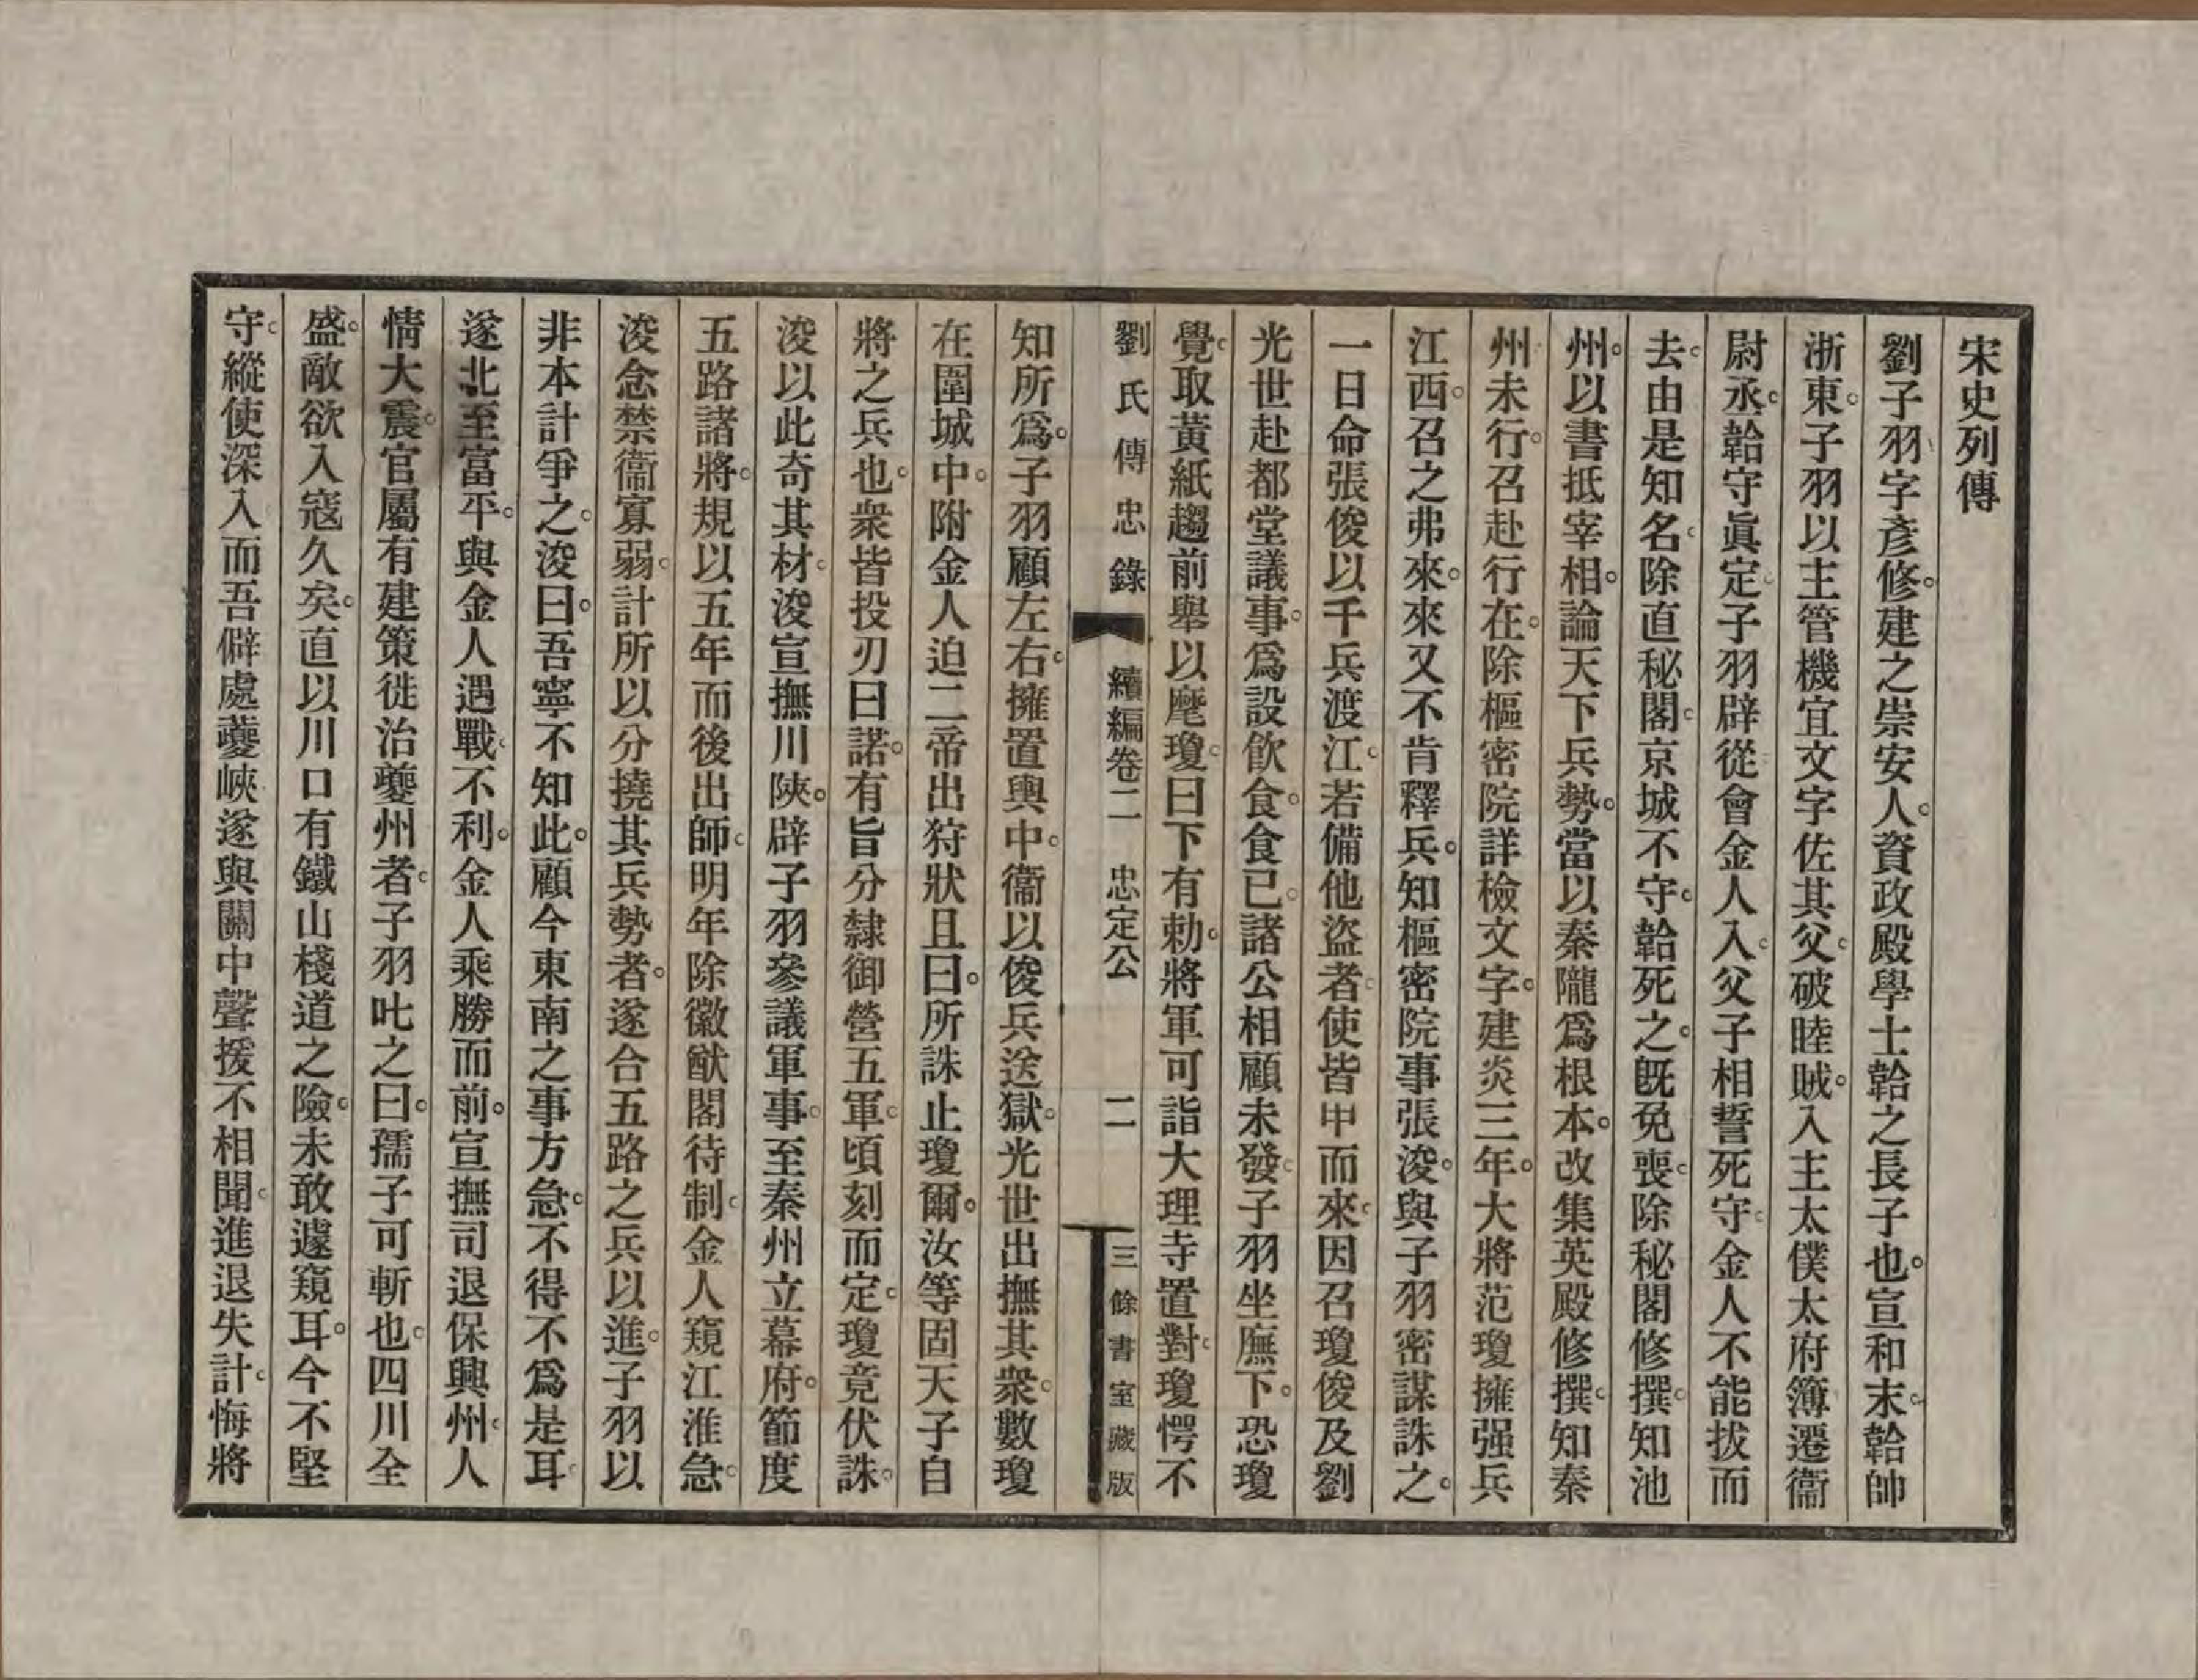 宋史列傳
劉子羽字彥修。建之崇安人。資政殿學士韐之長子也。宣和末。韐帥
浙東。子羽以主管機宜文字佐其父。破睦賊。入主太僕太府簿遷衞
尉丞。韐守眞定。子羽辟從會金人入。父子相誓死守。金人不能拔而
去。由是知名。除直秘閣。京城不守。韐死之。旣免喪。除秘閣修撰。知池
州。以書抵宰相。論天下兵勢。當以秦隴爲根本。改集英殿修撰。知秦
州未行。召赴行在。除樞密院詳檢文字。建炎三年。大將范瓊擁强兵
江西。召之弗來。來又不肯釋兵。知樞密院事張浚。與子羽密謀誅之。
一日命張俊以千兵渡江。若備他盜者。使皆甲而來。因召瓊俊及劉
光世赴都堂議事。爲設飮食。食已。諸公相顧未發。子羽坐廡下。恐瓊
覺。取黃紙趨前舉以麾瓊。曰下有勅。將軍可詣大理寺置對。瓊愕不
劉氏傳忠錄　續編卷二　忠定公　二　三餘書室藏版
知所爲。子羽顧左右。擁置輿中。衞以俊兵送獄。光世出撫其衆。數瓊
在圍城中。附金人迫二帝出狩狀且曰。所誅止瓊爾。汝等固天子自
將之兵也。衆皆投刃曰諾。有旨分隸御營五軍。頃刻而定。瓊竟伏誅。
浚以此奇其材。浚宣撫川陝。辟子羽參議軍事。至秦州立幕府。節度
五路諸將。規以五年而後出師。明年除徽猷閣待制。金人窺江淮急。
浚念禁衞寡弱。計所以分撓其兵勢者。遂合五路之兵以進。子羽以
非本計爭之。浚曰。吾寧不知此。顧今東南之事方急。不得不爲是耳。
遂北至富平。與金人遇戰。不利。金人乘勝而前。宣撫司退保興州。人
情大震。官屬有建策徙治夔州者。子羽叱之曰。孺子可斬也。四川全
盛。敵欲入寇久矣。直以川口有鐵山棧道之險。未敢遽窺耳。今不堅
守。縱使深入而吾僻處夔峽遂與關中聲援不相聞。進退失計。悔將